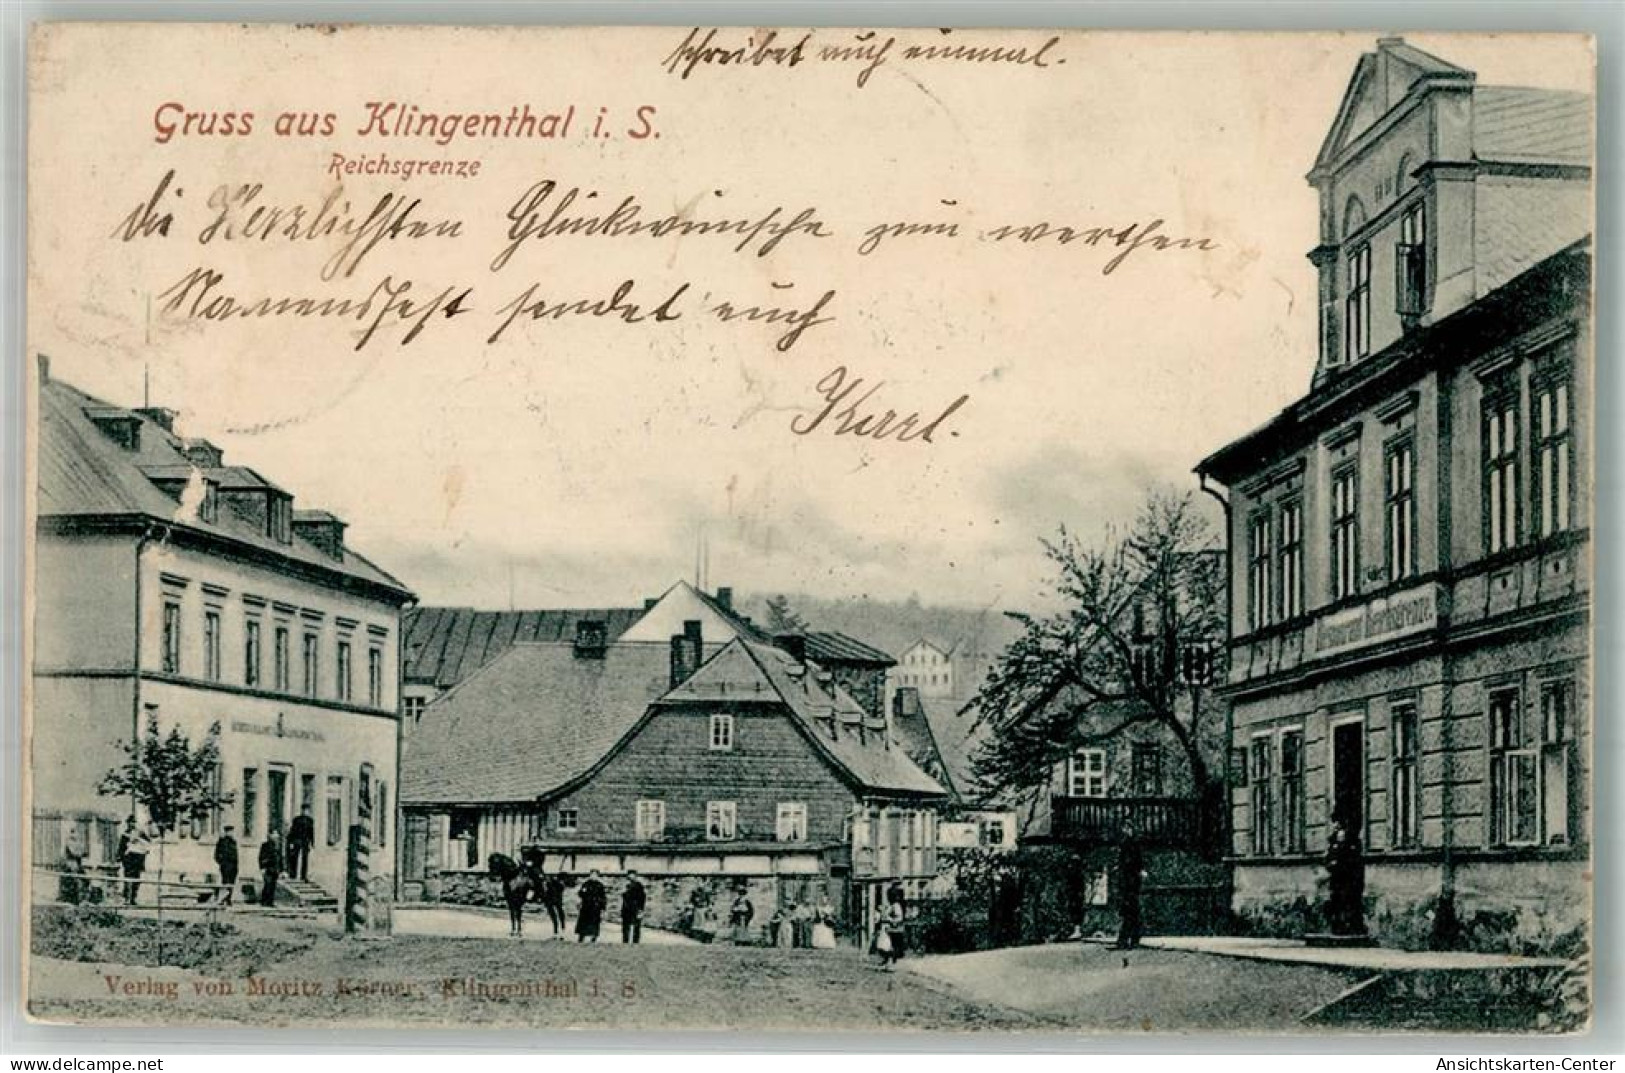 schreibet auch einmal.
Gruss aus Klingenthal i. S.
Reichsgrenze
die Herzlichsten Glückwünsche zum werthen
Namensfest sendet euch
Karl.
Restaurant Reichsgrenze.
Verlag von Moritz Körner, Klingenthal i. S.
delcampe.net
Ansichtskarten-Center